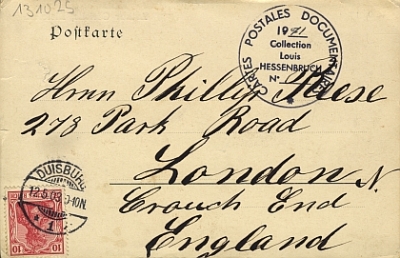 131025
Postkarte
CARTES POSTALES DOCUMENTAIRES
1981
Collection
Louis
HESSENBRUCH
N°
Herrn Phillip Reese
278 Park Road
London N.
Crouch End
England
DUISBURG
12.5.03
-10N.
1
10 10